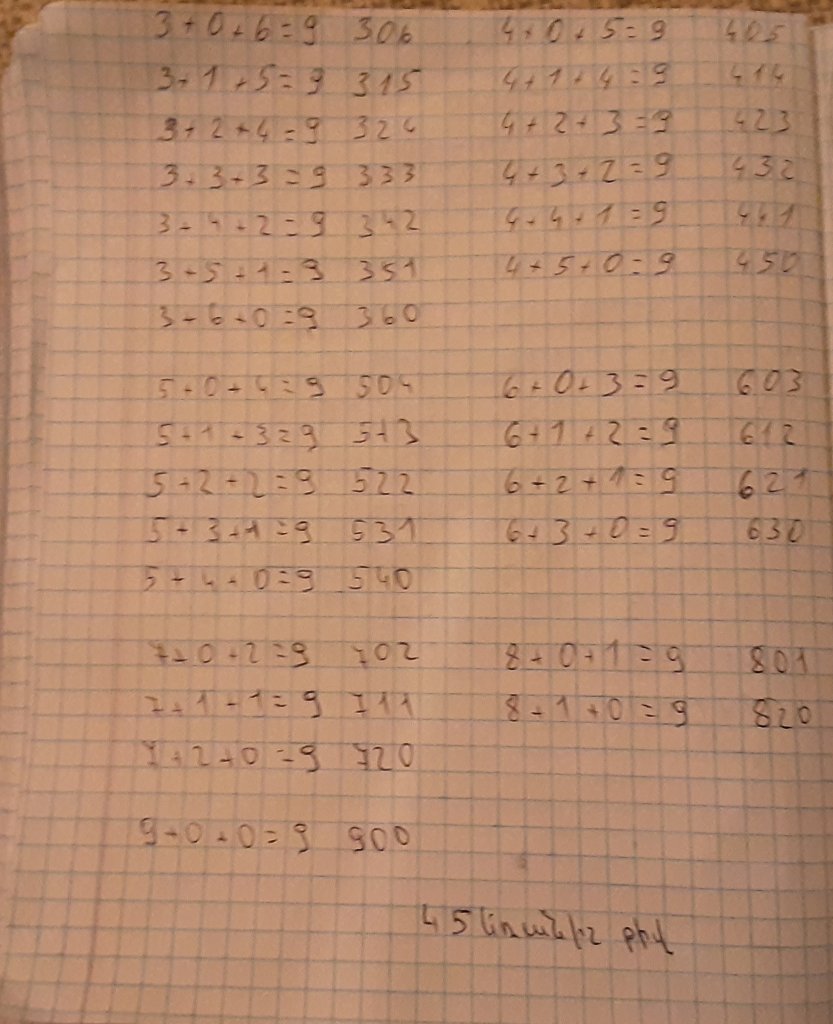 3+0+6=9 306 4+0+5=9 405
3+1+5=9 315 4+1+4=9 414
3+2+4=9 324 4+2+3=9 423
3+3+3=9 333 4+3+2=9 432
3+4+2=9 342 4+4+1=9 441
3+5+1=9 351 4+5+0=9 450
3+6+0=9 360
5+0+4=9 504 6+0+3=9 603
5+1+3=9 513 6+1+2=9 612
5+2+2=9 522 6+2+1=9 621
5+3+1=9 531 6+3+0=9 630
5+4+0=9 540
7+0+2=9 702 8+0+1=9 801
7+1+1=9 711 8+1+0=9 820
7+2+0=9 720
9+0+0=9 900
45